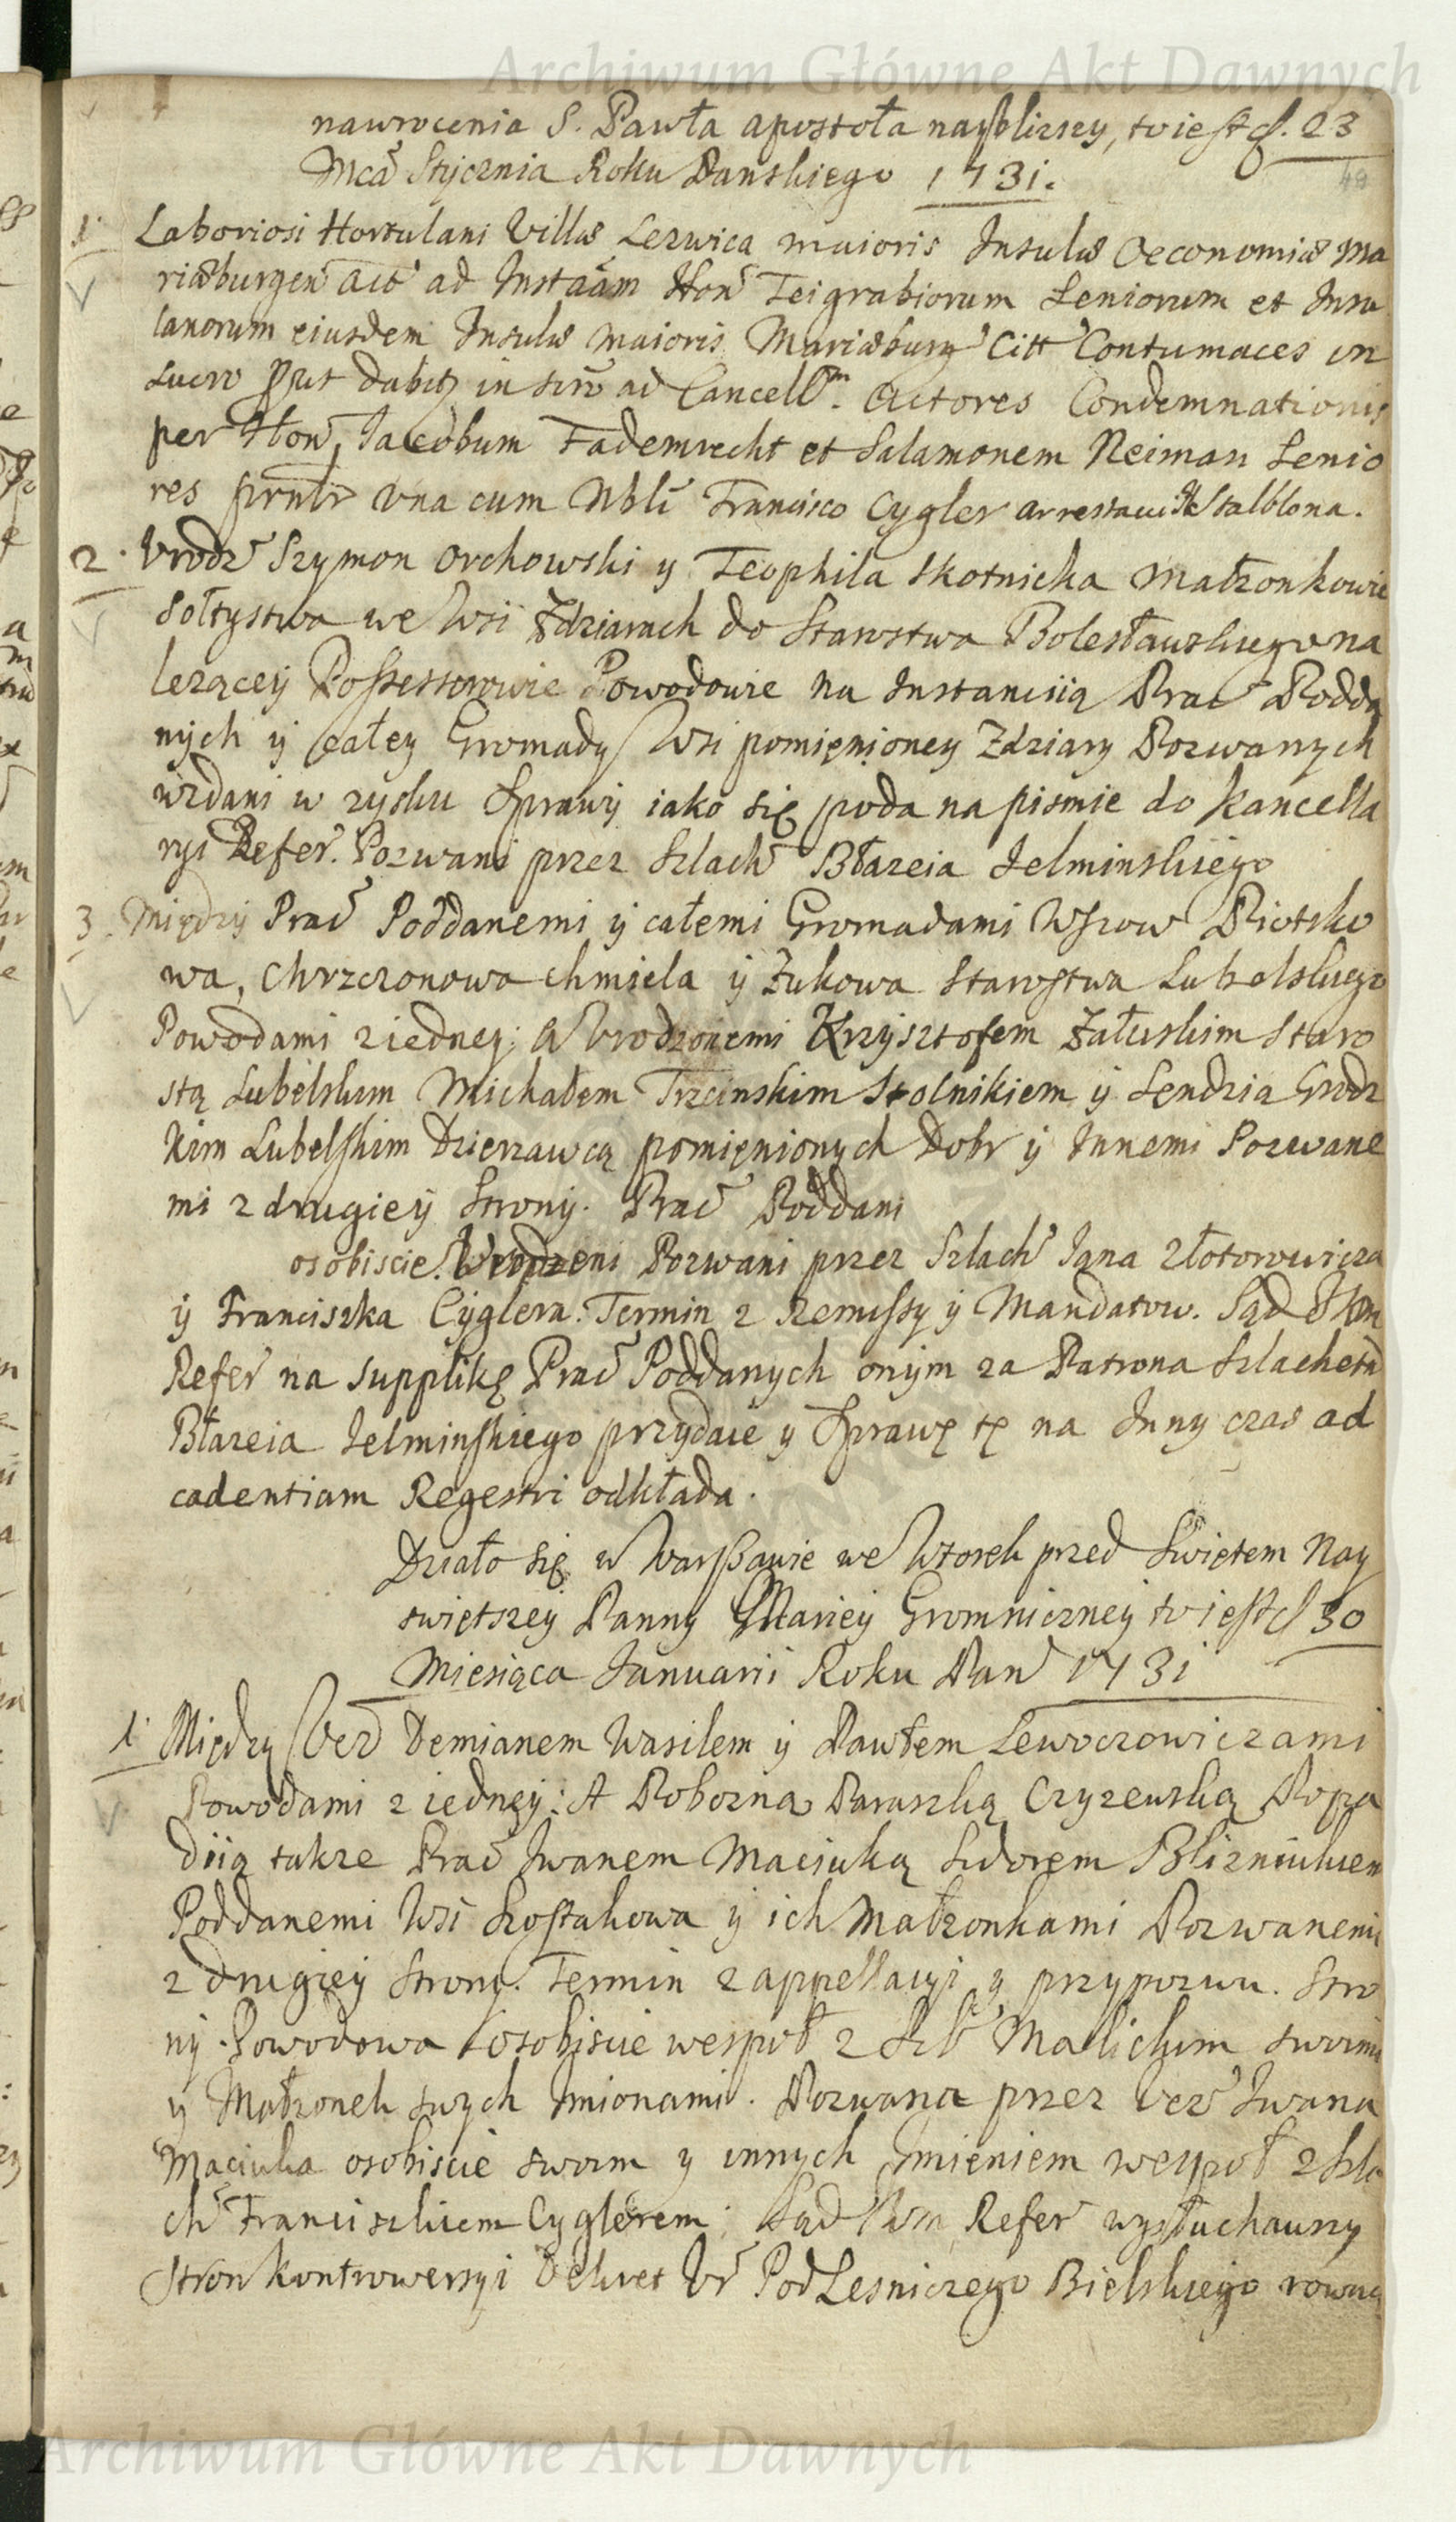 Archiwum Główne Akt Dawnych
nawrocenia S. Pawła apostoła nayblizszy, to iest d. 23
Mca Stycznia Roku Panskiego 1731.
49
1. Laboriosi Hortulani Villæ Lezwica maioris Insulæ Oeconomiæ Ma
riæburgen Act ad Instaam Hon Teigrabiorum Seniorum et Insu
lanorum eiusdem Insulæ maioris Mariæburg Citt Contumaces in
Lucro put dabit in scro ad Cancell. Actores Condemnationis
per Hon, Jacobum Fademrecht et Salamonem Neiman Senio
res prntr una cum Nbli Francisco Cygler
2. Urodz Szymon Orchowski y Teophila Skotnicka Małzonkowie
Sołtystwa we Wsi Zdziarach do Starostwa Bolesławskiego na
lezącey Possessorowie Powodowie na Instanciią Prac Podda
nych y całey Gromady Wsi pomięnioney Zdziary Pozwanych
wzdani w zysku Sprawy iako się poda na pismie do Kancella
ryi Refer. Pozwani przez Szlach Błazeia Jelminskiego
3. Między Prac Poddanemi y całemi Gromadami Wsiow Piotrko
wa, Chrzczonowa Chmiela y Zukowa Starostwa Lubelskiego
Powodami z iedney; A Urodzonemi Krzysztofem Załuskim Staro
stą Lubelskim Michałem Trzcinskim Stolnikiem y Sendzią Grodz
kim Lubelskim Dzierzawcą pomięnionych Dobr y Innemi Pozwane
mi z drugiey Strony. Prac Poddani
osobiscie. Urodzeni Pozwani przez Szlach Jana Złotorowicza
y Franciszka Cyglera. Termin z Remissy y Mandatow. Sąd Ikm
Refer na supplikę Prac Poddanych onym za Patrona Szlachetn
Błazeia Jelminskiego przydaie y Sprawę tę na Inny czas ad
cadentiam Regestri odkłada.
Działo się w Warszawie we Wtorek przed Swiętem Nay
swiętszey Panny Mariey Gromniczney to iest d 30
Miesiąca Januarii Roku Pan 1731
1. Między Ucz Demianem Wasilem y Pawłem Lewoczowiczami
Powodami z iedney: A Pobozną Paraszką Czyzewską Popa
diią takze Prac Iwanem Maciuką Sidorem Blizniukiem
Poddanemi Wsi Szostakowa y ich Małzonkami Pozwanemi
z drugiey Strony. Termin z appellacyi y przypozwu. Stro
ny Powodowa osobiscie wespoł z Szl Malickim swoimi
y Małzonek swych Imionami. Pozwana przez Ucz Iwana
Maciuka osobiscie swoim y innych Imieniem wespoł z Szla
ch Franciszkiem Cyglerem. Sąd Ikm Refer wysłuchawszy
Stron kontrowersyi Dekret Ur PodLesniczego Bielskiego
Archiwum Główne Akt Dawnych